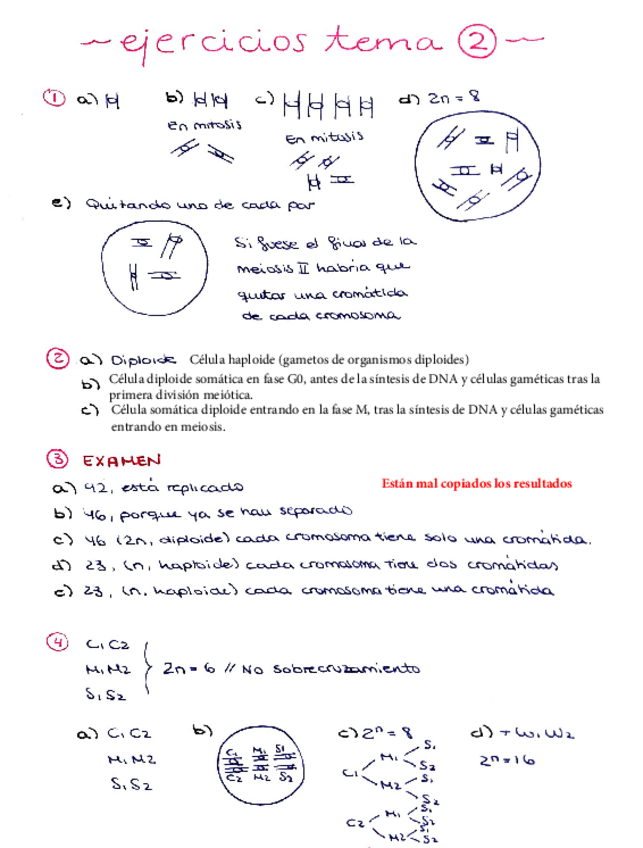 ~ ejercicios tema 2 ~
1 a) b) c) d) 2n = 8
en mitosis
en mitosis
e) Quitando uno de cada par
Si fuese el final de la
meiosis II habría que
quitar una cromátida
de cada cromosoma
2 a) Diploide Célula haploide (gametos de organismos diploides)
b) Célula diploide somática en fase G0, antes de la síntesis de DNA y células gaméticas tras la
primera división meiótica.
c) Célula somática diploide entrando en la fase M, tras la síntesis de DNA y células gaméticas
entrando en meiosis.
3 EXAMEN
a) 92, está replicado
Están mal copiados los resultados
b) 46, porque ya se han separado
c) 46 (2n, diploide) cada cromosoma tiene solo una cromátida.
d) 23, (n, haploide) cada cromosoma tiene dos cromátidas
e) 23, (n, haploide) cada cromosoma tiene una cromátida
4 C1 C2
M1 M2 2n = 6 // No sobrecruzamiento
S1 S2
a) C1 C2
M1 M2
S1 S2
b) C1 M1 S1
C2 M2 S2
c) 2^n = 8
C1 M1 S1
S2
M2 S1
S2
C2 M1 S1
S2
M2 S1
S2
d) + W1 W2
2^n = 16